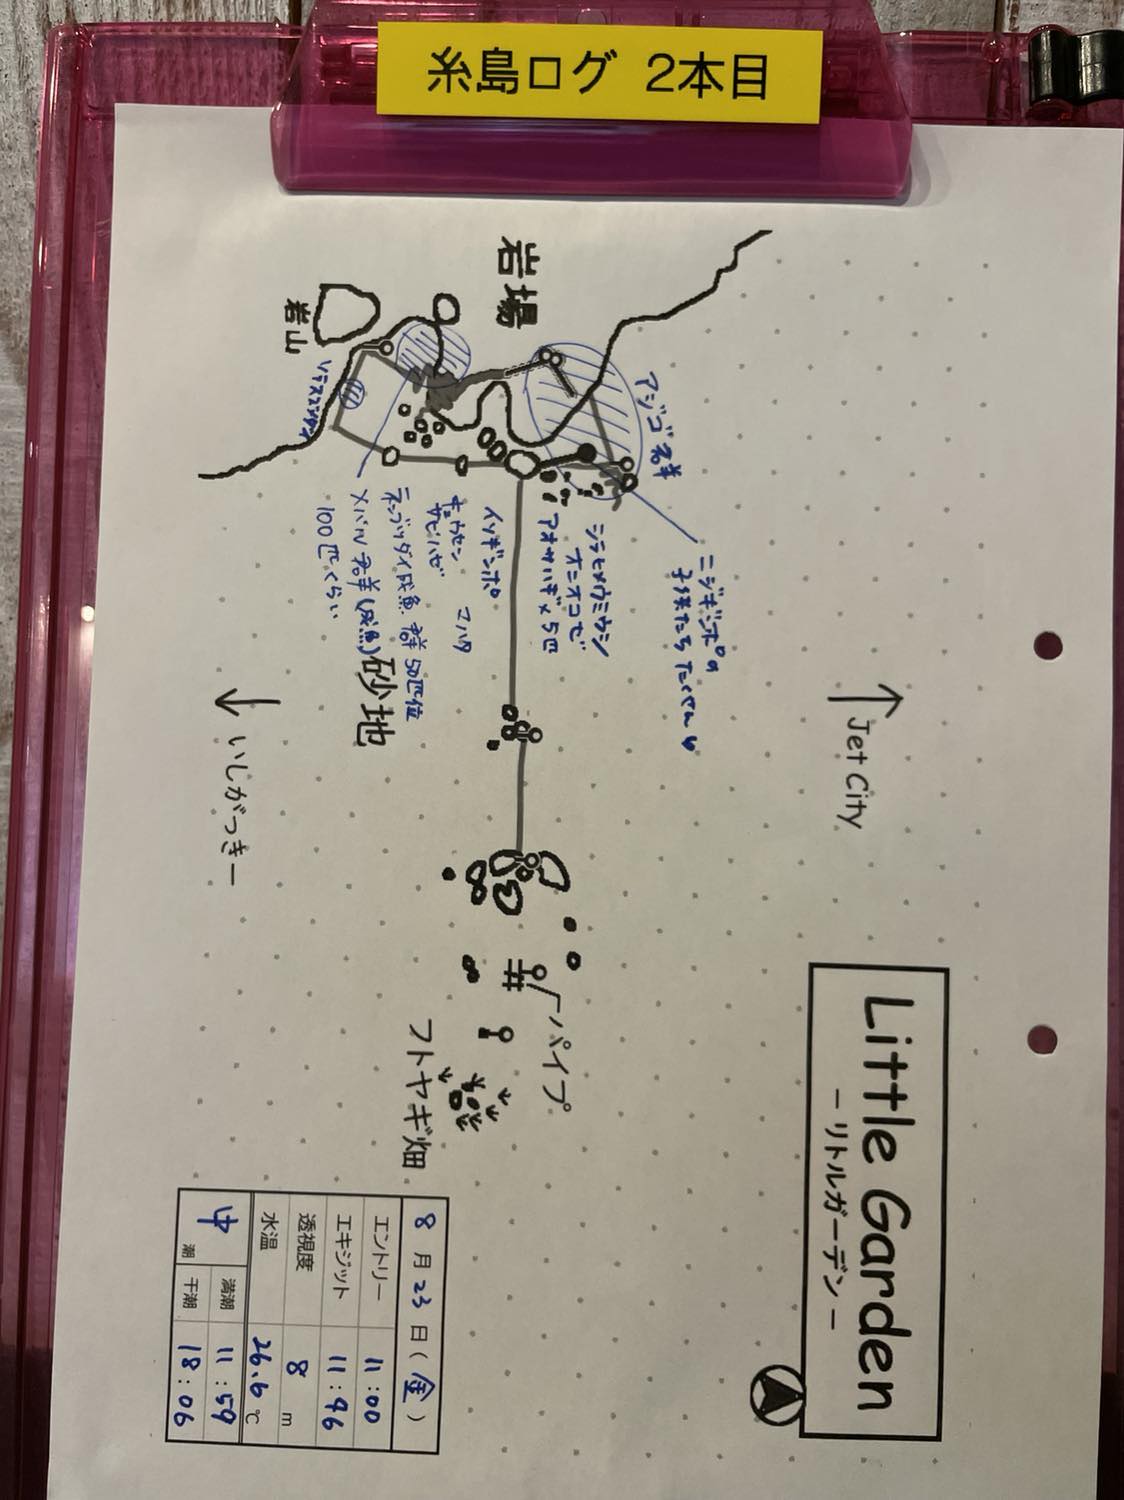 糸島ログ 2本目
Little Garden
－リトルガーデン－
↑ Jet City
岩場
岩山
アジゴ群
ニジギンポの
子供たち たくさん
シラヒメウミウシ
オニオコゼ
アオサハギ×5匹
イソギンポ
コハタ
キュウセン
サビハゼ
ネンブツダイ成魚 群 50匹位
メバル群(成魚)
100匹くらい
砂地
↓ いしがっきー
パイプ
フトヤギ畑
8月23日(金)
エントリー 11:00
エキジット 11:46
透視度 8 m
水温 26.6℃
中潮
満潮 11:59
干潮 18:06